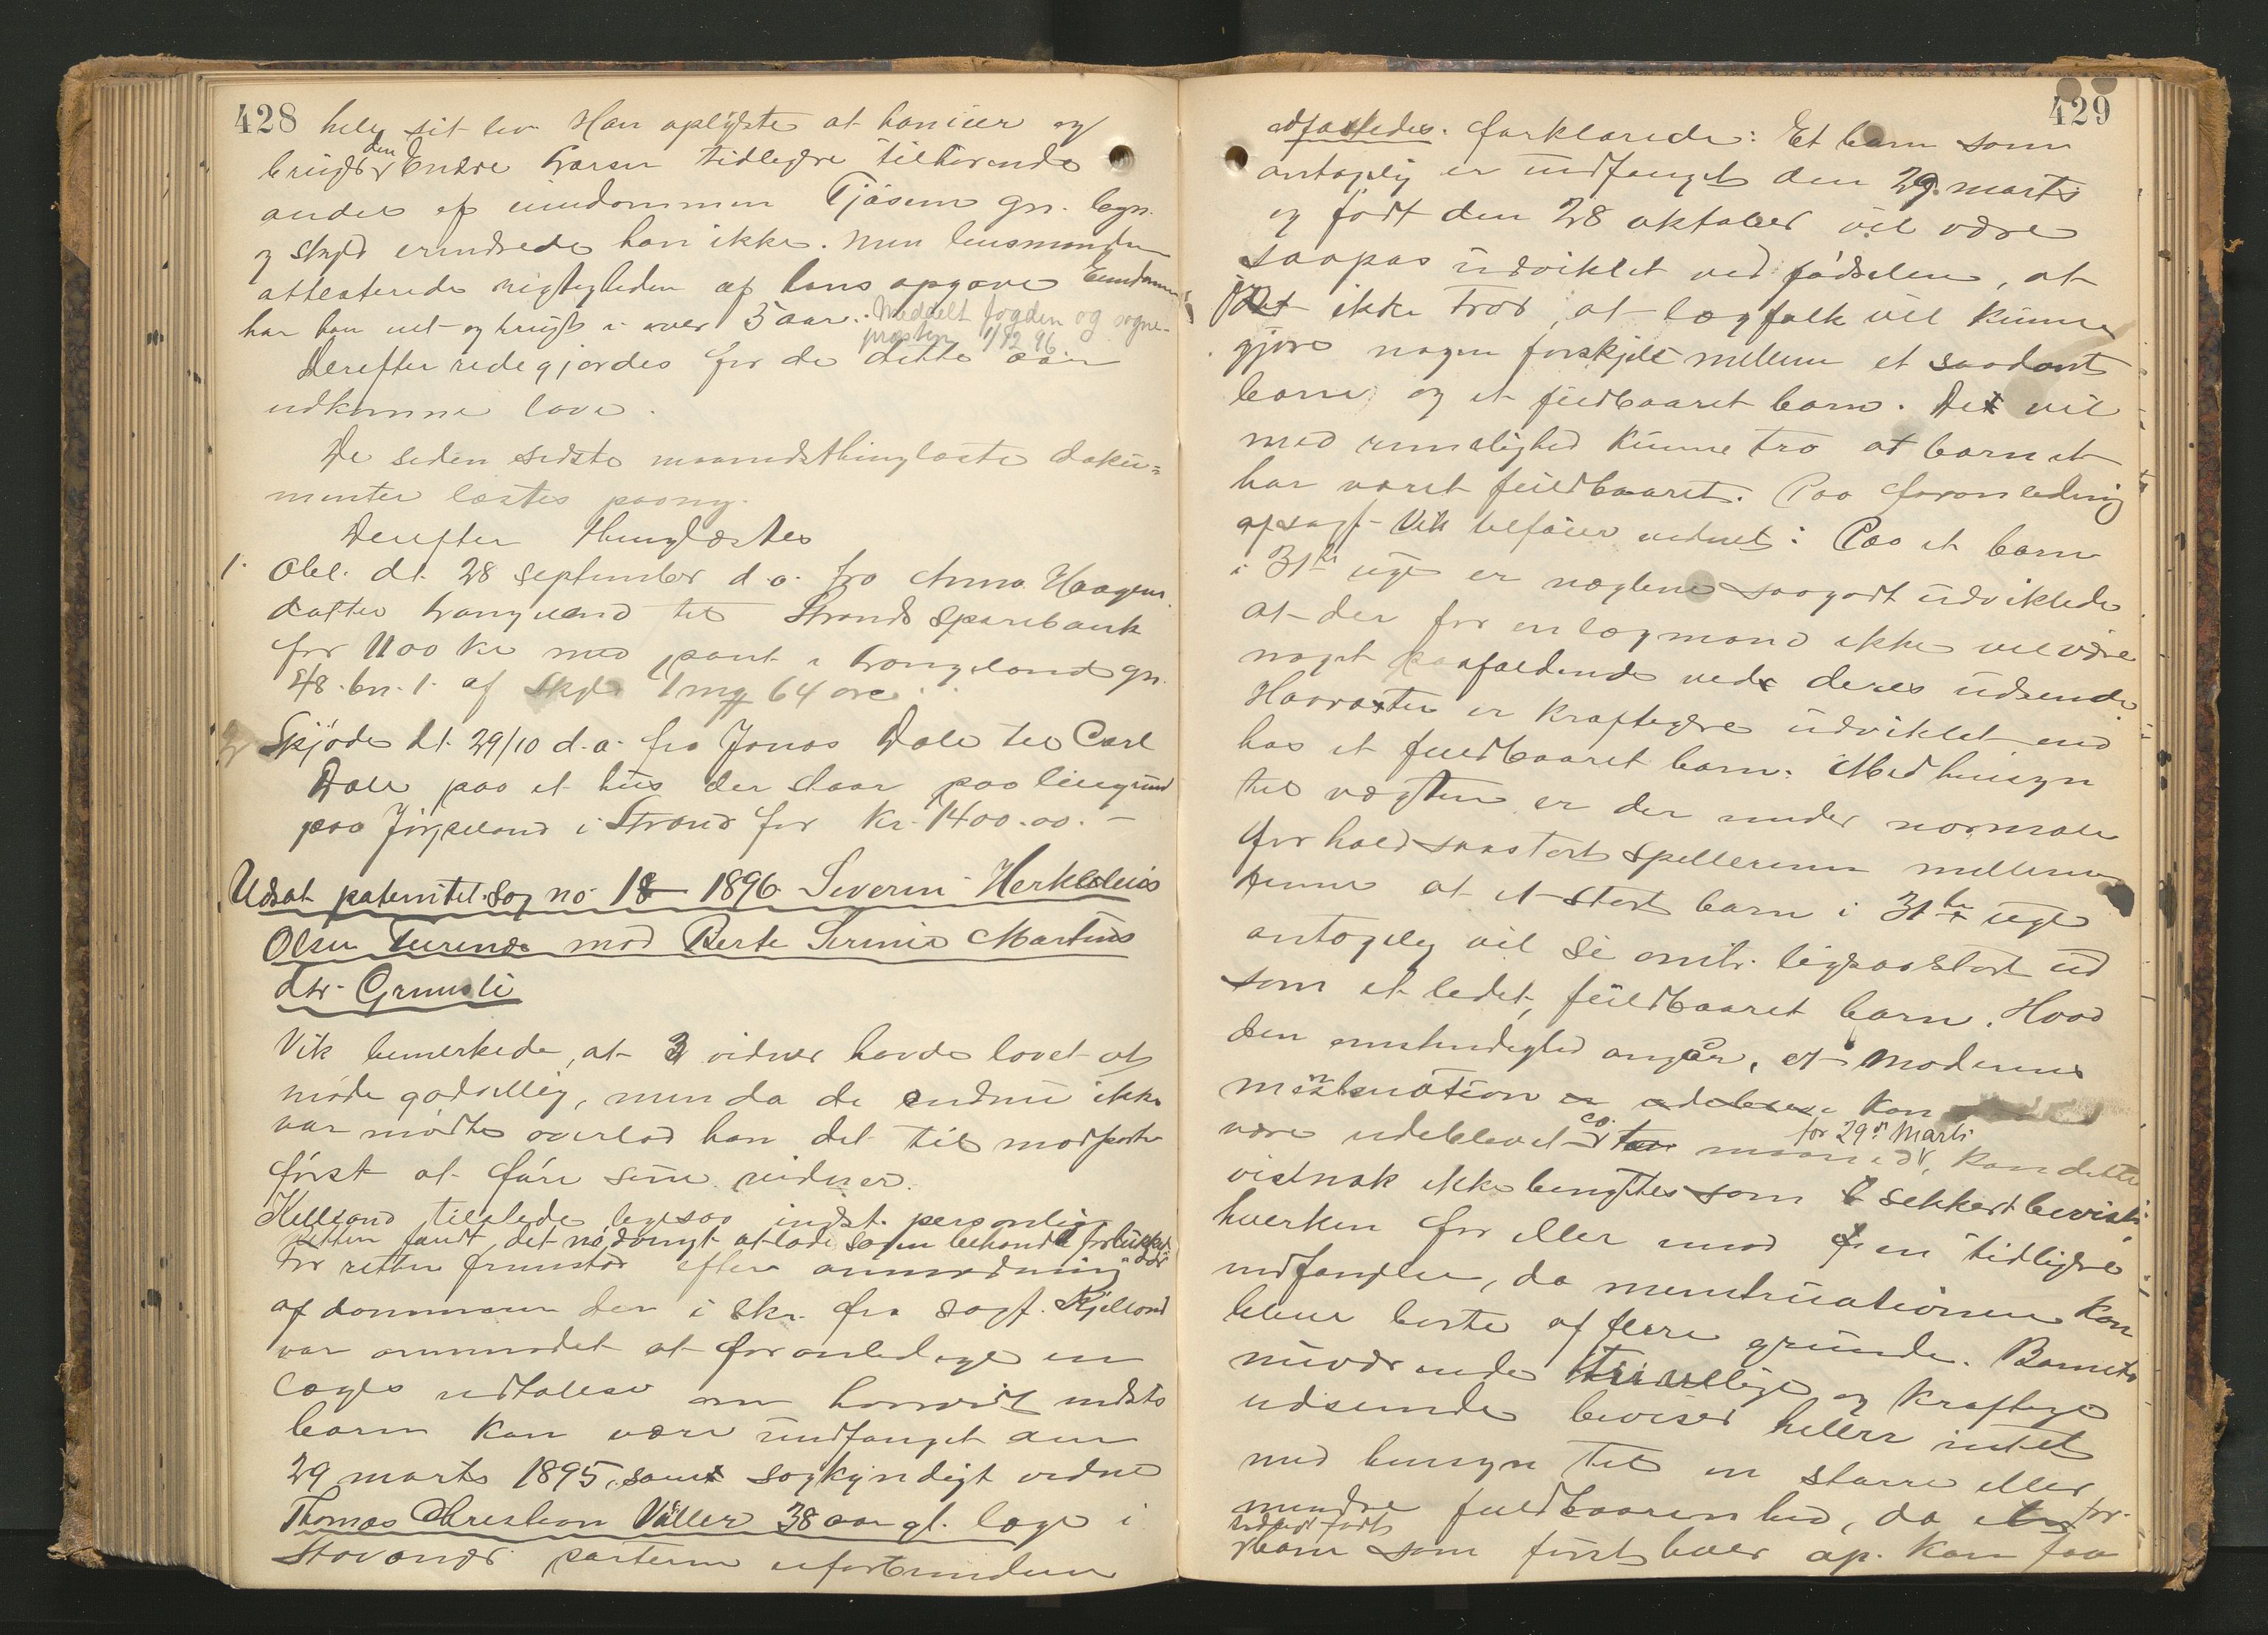 428
hele sit lev. Han oplyste at han eier og
bruger den Endre Larsen tidligere tilhørende
andel af eiendommen Tjåsem gn. bgn.
og skyld erindrede han ikke. Men lensmanden
attesterede rigtigheden af hans opgave Eiendommen
har han eiet og brugt i over 5 aar. Meddelt fogden og sogne-
præsten 1/12 96
Derefter redegjordes for de dette aar
udkomne love.
De siden sidste maanedsthinglæste doku=
menter læstes paany.
Derefter thinglæstes
1. Obl. dt. 28 september d.a. fra Anna Haagens
datter Langeland til Strands Sparebank
for 1100 kr med pant i Langeland gn.
48. bn. 1. af skyld 1 mrk 64 øre.
2 Skjøde dt. 29/10 d.a. fra Jonas Dale til Carl
Dale paa et hus der staar paa leiegrund
paa Jørpeland i Strand for Kr. 1400.00. -
Udsat paternitet.sag no 18 1896 Severin Herkleleius
Olsen Turende mod Berte Serine Martins
dtr. Grumsli
Vik bemerkede, at 3 vidner havde lovet at
møde godvillig, men da de endnu ikke
var mødte overlod han det til modparten
først at føre sine vidner.
Kielland tilstede ligesaa indst. personlig
Retten fandt det nødvengt at lade sagen behandle for lukkede
dør
For retten fremstod efter anmodning
af dommeren der i skr. fra sagf. Kjelland
var anmodet at foranledige en
læges udtalelse om hvorvidt indsts
barn kan være undfanget den
29 marts 1895, som sagkyndigt vidne
Thomas Christian Våller 38 aar gl. læge i
Stavanger parterne uforbunden
429
edfæstedes. forklarede: Et barn som
antagelig er undfanget den 29. marts
og født den 28 oktober vil være
saapas udviklet ved fødselen, at
jeg ikke tror, at lægfolk vil kunne
gjøre nogen forskjel mellem et saadant
barn og et fuldbaaret barn. De vil
med rimelighed kunne tro at barnet
har været fuldbaaret. Paa foranledning
af sagf. Vik tilføier vidnet: Paa et barn
i 31te uge er neglene saagodt udviklede
at der for en lægmand ikke vil være
noget paafaldende ved deres udseende.
Haarvæxten er kraftigere udviklet end
hos et fuldbaaret barn. Med hensyn
til vægten er der under normale
forhold saa stort spillerum mellem
denne at et stort barn i 31te uge
antagelig vil se omtr. ligesaa stort ud
som et lidet, fuldbaaret barn. Hvad
den omstendighed angår, at moderens
menstruation er udebleven kan
være udeblevet ca. to maaneder for 29de marts, kan dette
vistnok ikke benyttes som sikkert bevis
hverken for eller imod en tidligere
undfangelse, da menstruationen kan
blive borte af flere grunde. Barnets
nuværende trivelige og kraftige
udseende beviser heller intet
med hensyn til en større eller
mindre fuldbaarenhed, da et for
tidligt født
barn som først lever op. kan faa